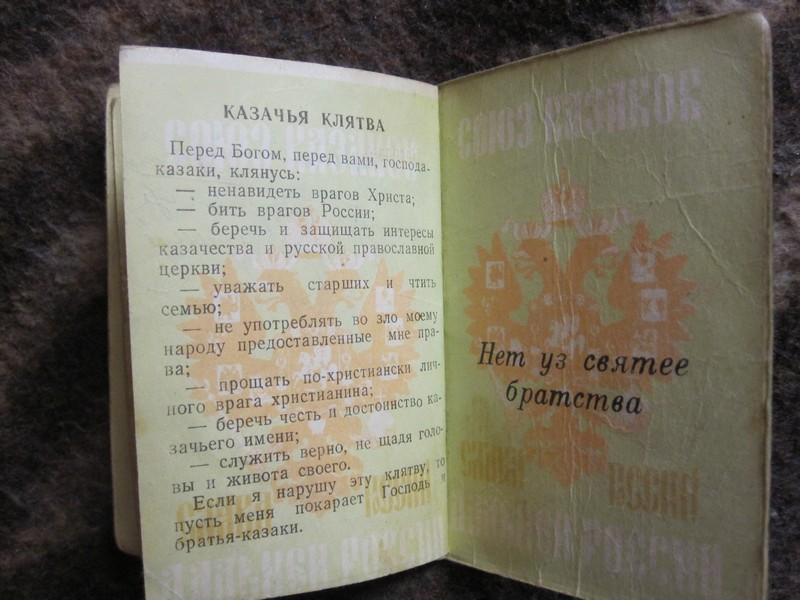 КАЗАЧЬЯ КЛЯТВА
Перед Богом, перед вами, господа-
казаки, клянусь:
— ненавидеть врагов Христа;
— бить врагов России;
— беречь и защищать интересы
казачества и русской православной
церкви;
— уважать старших и чтить
семью;
— не употреблять во зло моему
народу предоставленные мне пра-
ва;
— прощать по-христиански лич-
ного врага христианина;
— беречь честь и достоинство ка-
зачьего имени;
— служить верно, не щадя голо-
вы и живота своего.
Если я нарушу эту клятву, то
пусть меня покарает Господь и
братья-казаки.
Нет уз святее
братства